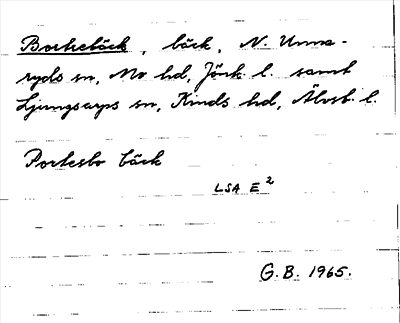 Borkebäck, bäck, N. Unna-
ryds sn, Mo hd, Jönk. l. samt
Ljungsarps sn, Kinds hd, Älvsb. l.
Porkesbo bäck
LSA E²
G.B. 1965.